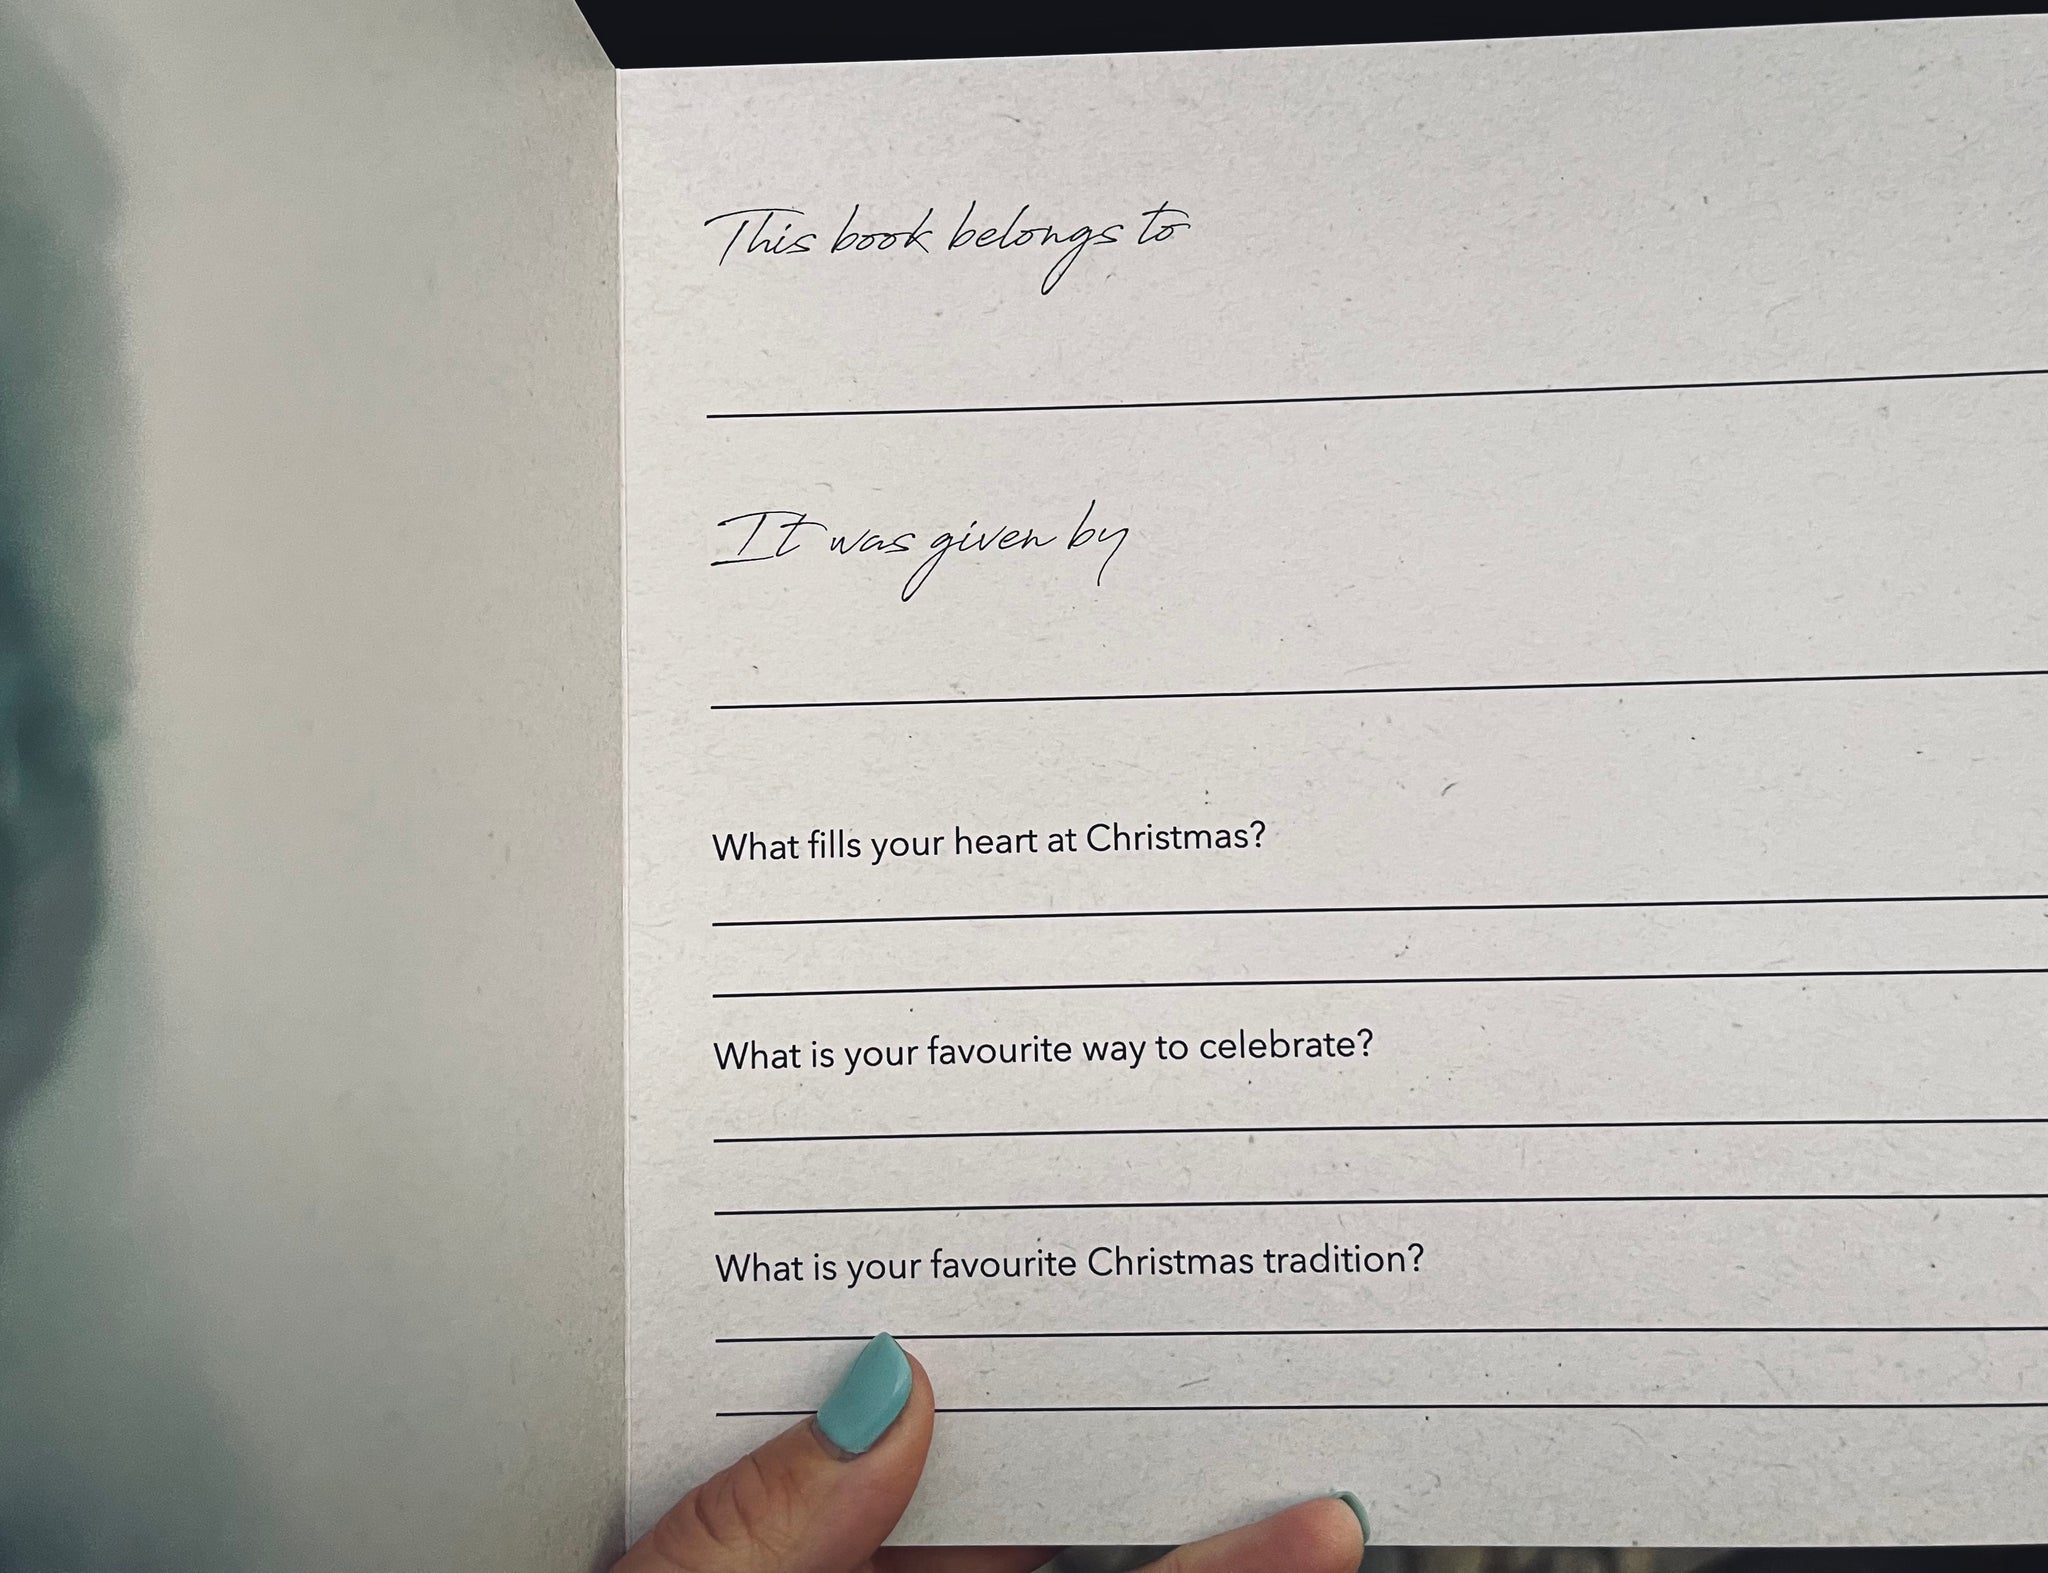 This book belongs to
It was given by
What fills your heart at Christmas?
What is your favourite way to celebrate?
What is your favourite Christmas tradition?